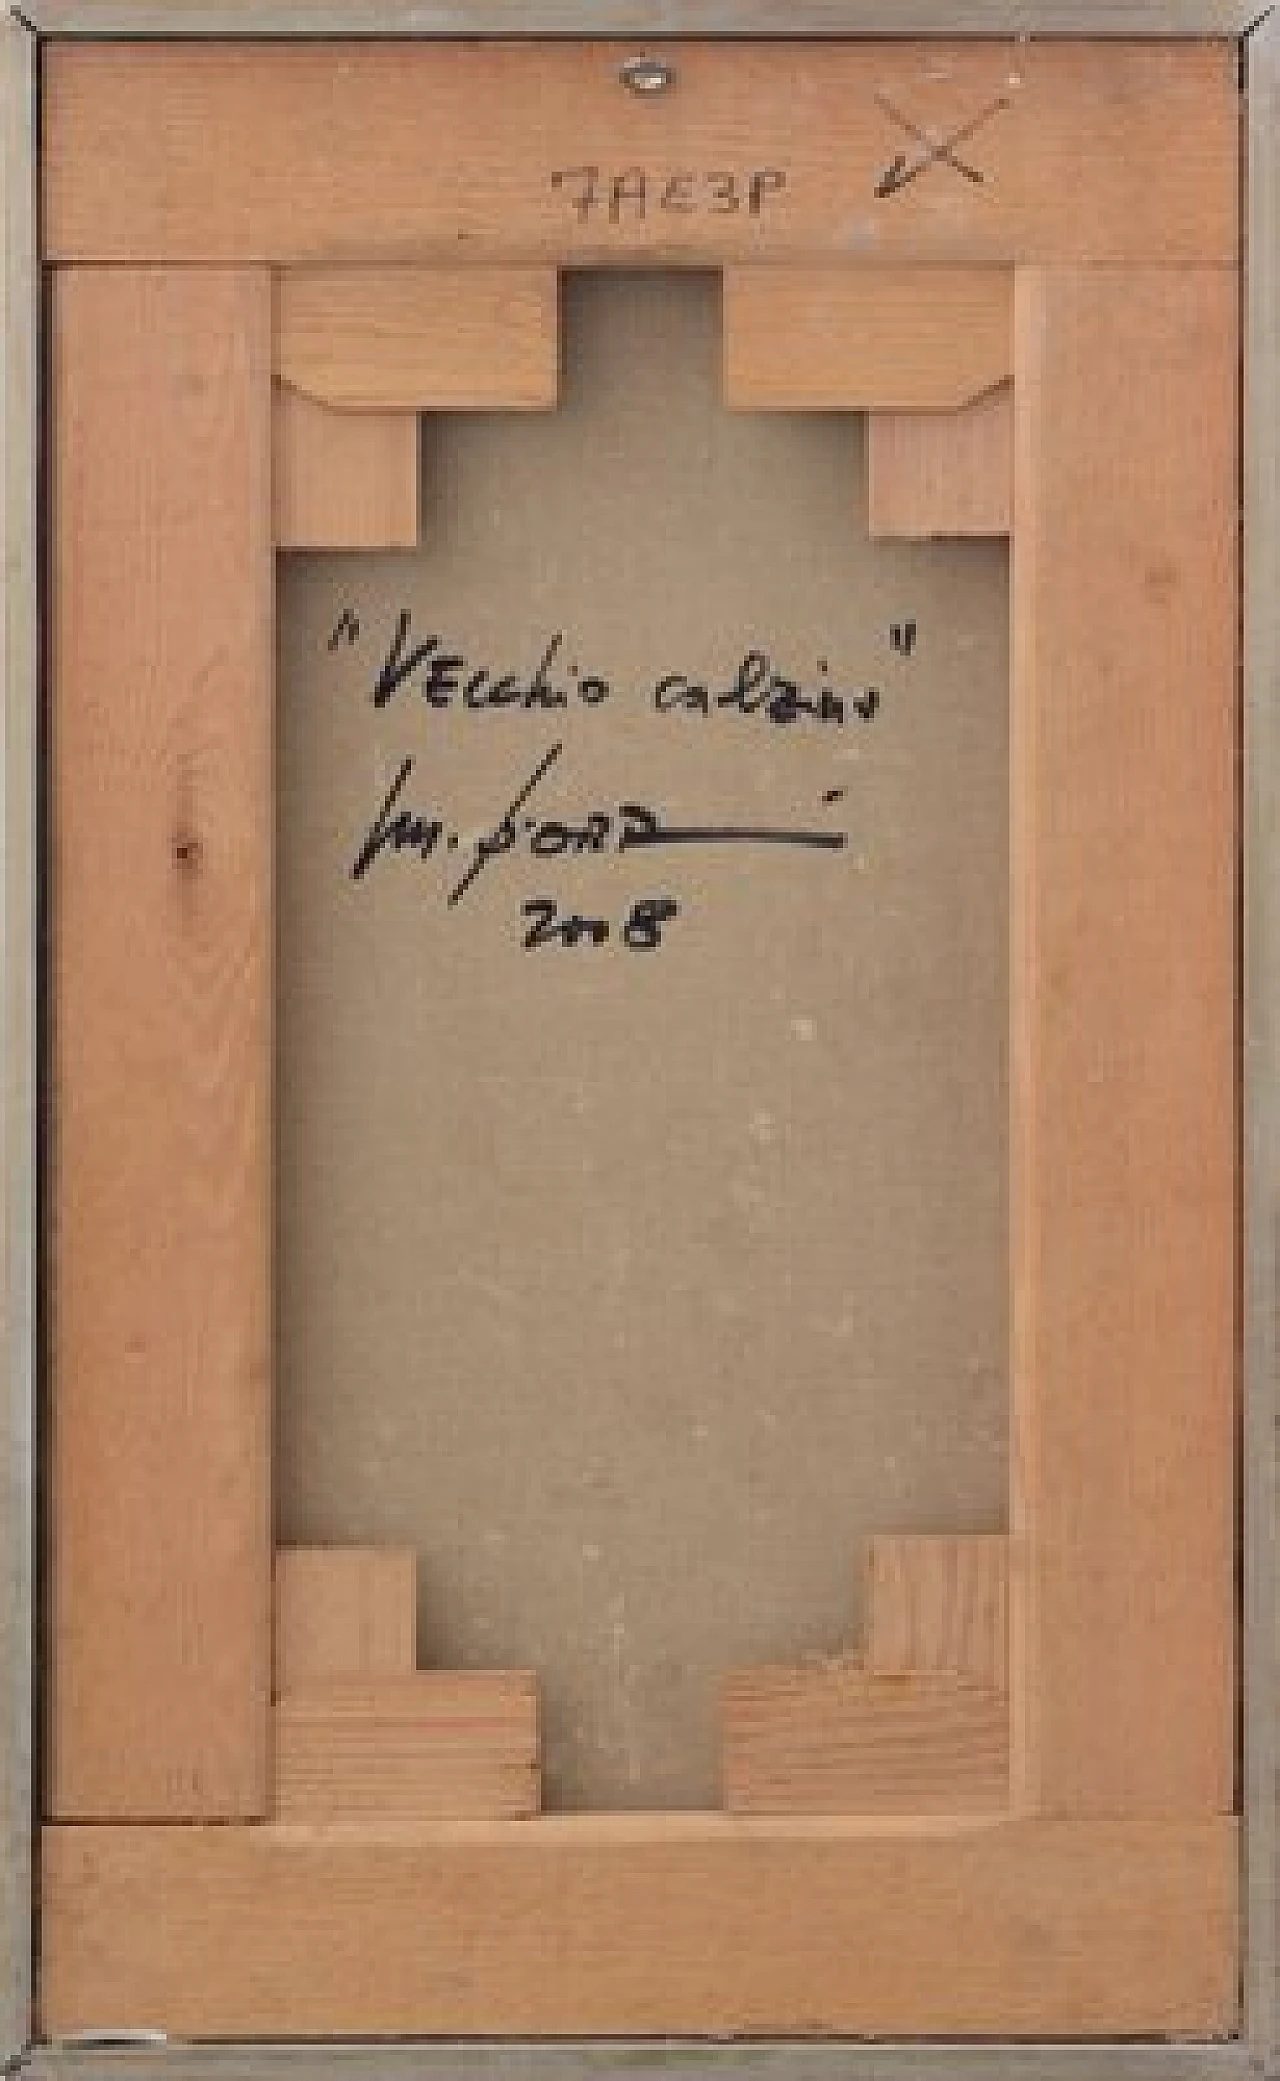 7AE3P
"VEcchio calzino"
M.
2008